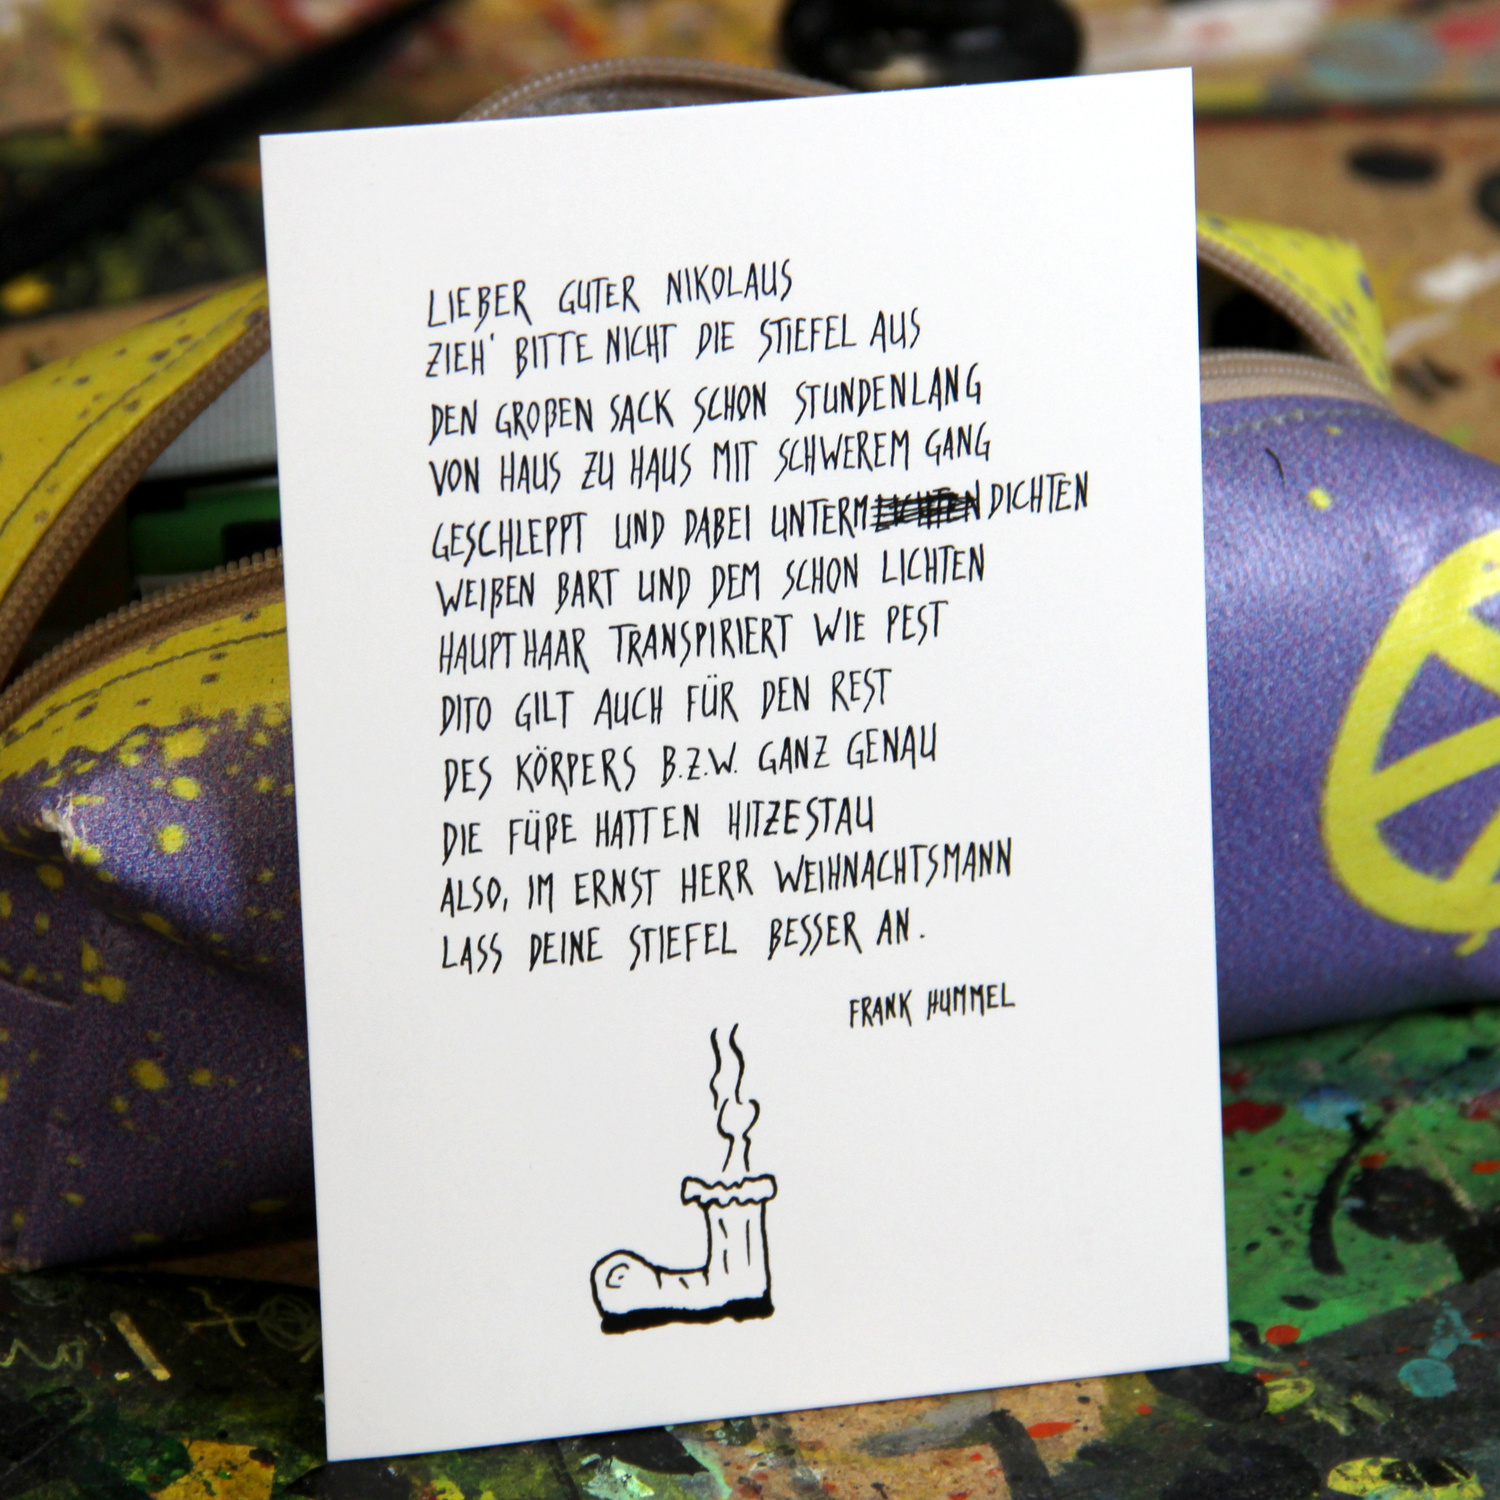 LIEBER GUTER NIKOLAUS
ZIEH' BITTE NICHT DIE STIEFEL AUS
DEN GROßEN SACK SCHON STUNDENLANG
VON HAUS ZU HAUS MIT SCHWEREM GANG
GESCHLEPPT UND DABEI UNTERM DICHTEN
WEIßEN BART UND DEM SCHON LICHTEN
HAUPTHAAR TRANSPIRIERT WIE PEST
DITO GILT AUCH FÜR DEN REST
DES KÖRPERS B.Z.W. GANZ GENAU
DIE FÜßE HATTEN HITZESTAU
ALSO, IM ERNST HERR WEIHNACHTSMANN
LASS DEINE STIEFEL BESSER AN.
FRANK HUMMEL